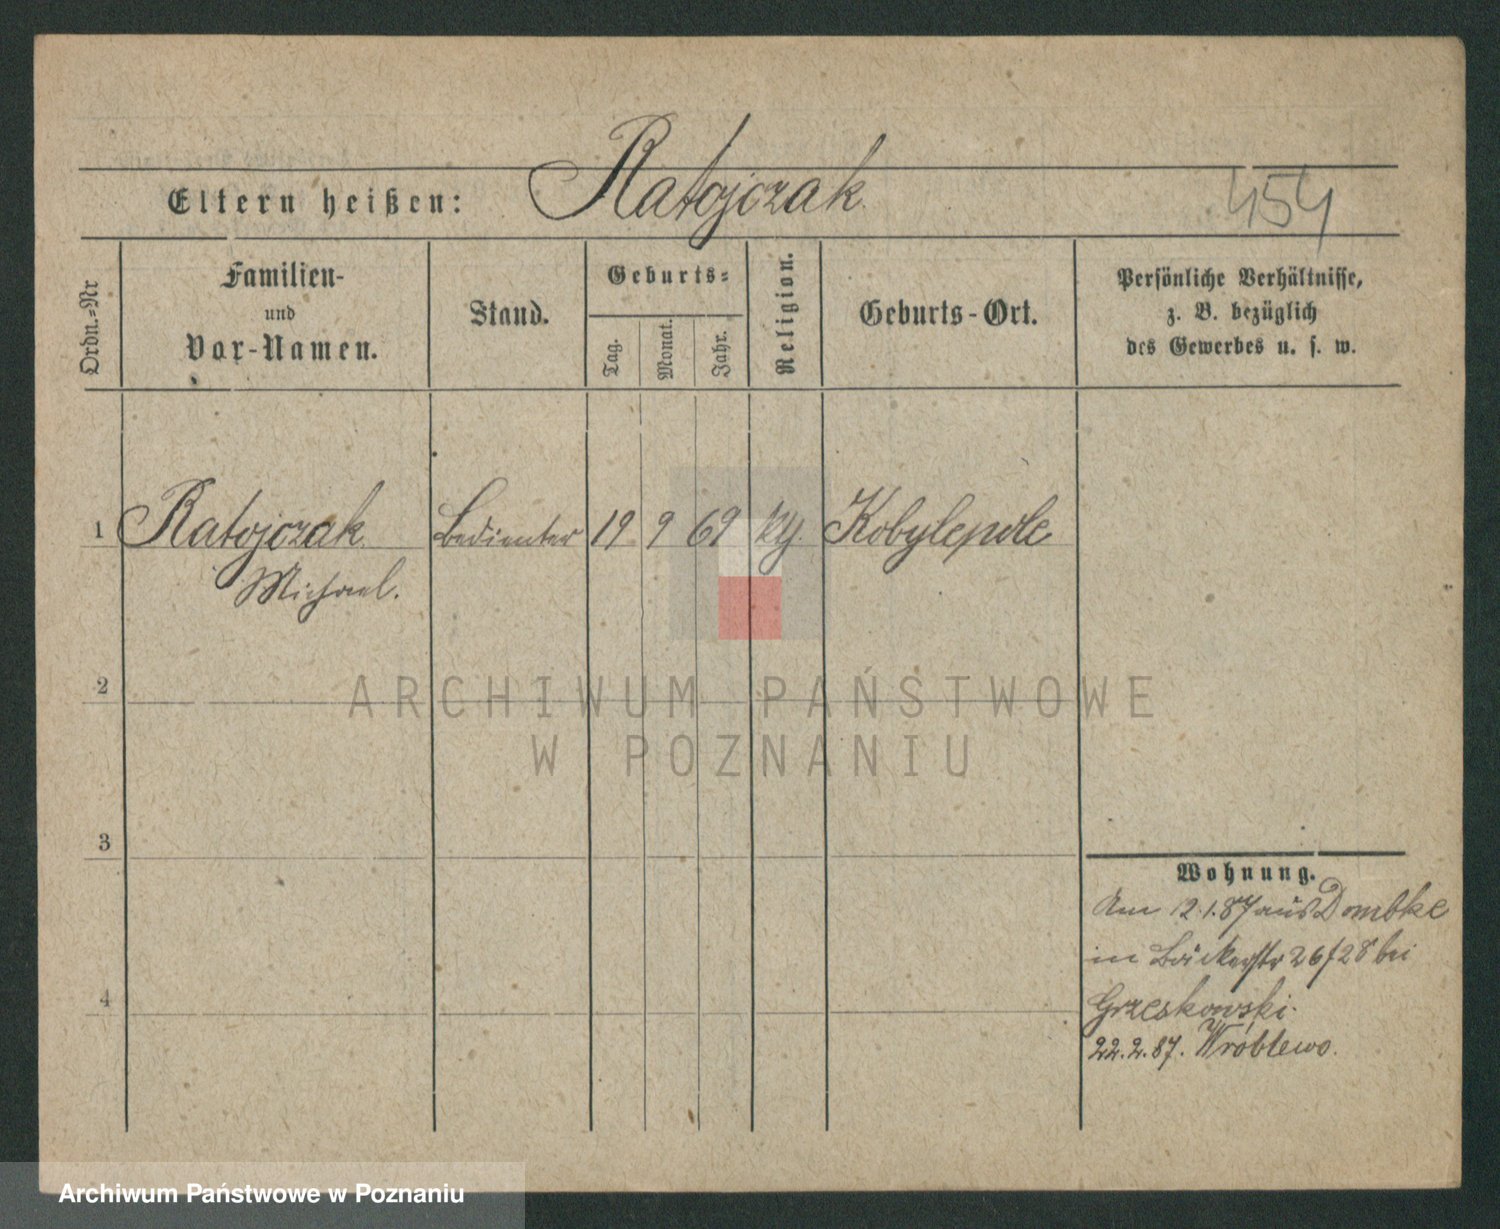 Eltern heißen: Ratajczak 454
Ordn.=Nr
Familien-
und
Vor-Namen.
Stand.
Geburts=
Tag.
Monat.
Jahr.
Religion.
Geburts-Ort.
Persönliche Verhältnisse,
z. B. bezüglich
des Gewerbes u. s. w.
1 Ratajczak Bedienter 19 9 69 kg. Kobylepole
Michael.
2
3
4
Wohnung.
Am 12.1.87 aus Dombke
in Bäckerstr 26/28 bei
Grzeskowski.
22.2.87. Wróblewo.
ARCHIWUM PAŃSTWOWE
W POZNANIU
Archiwum Państwowe w Poznaniu